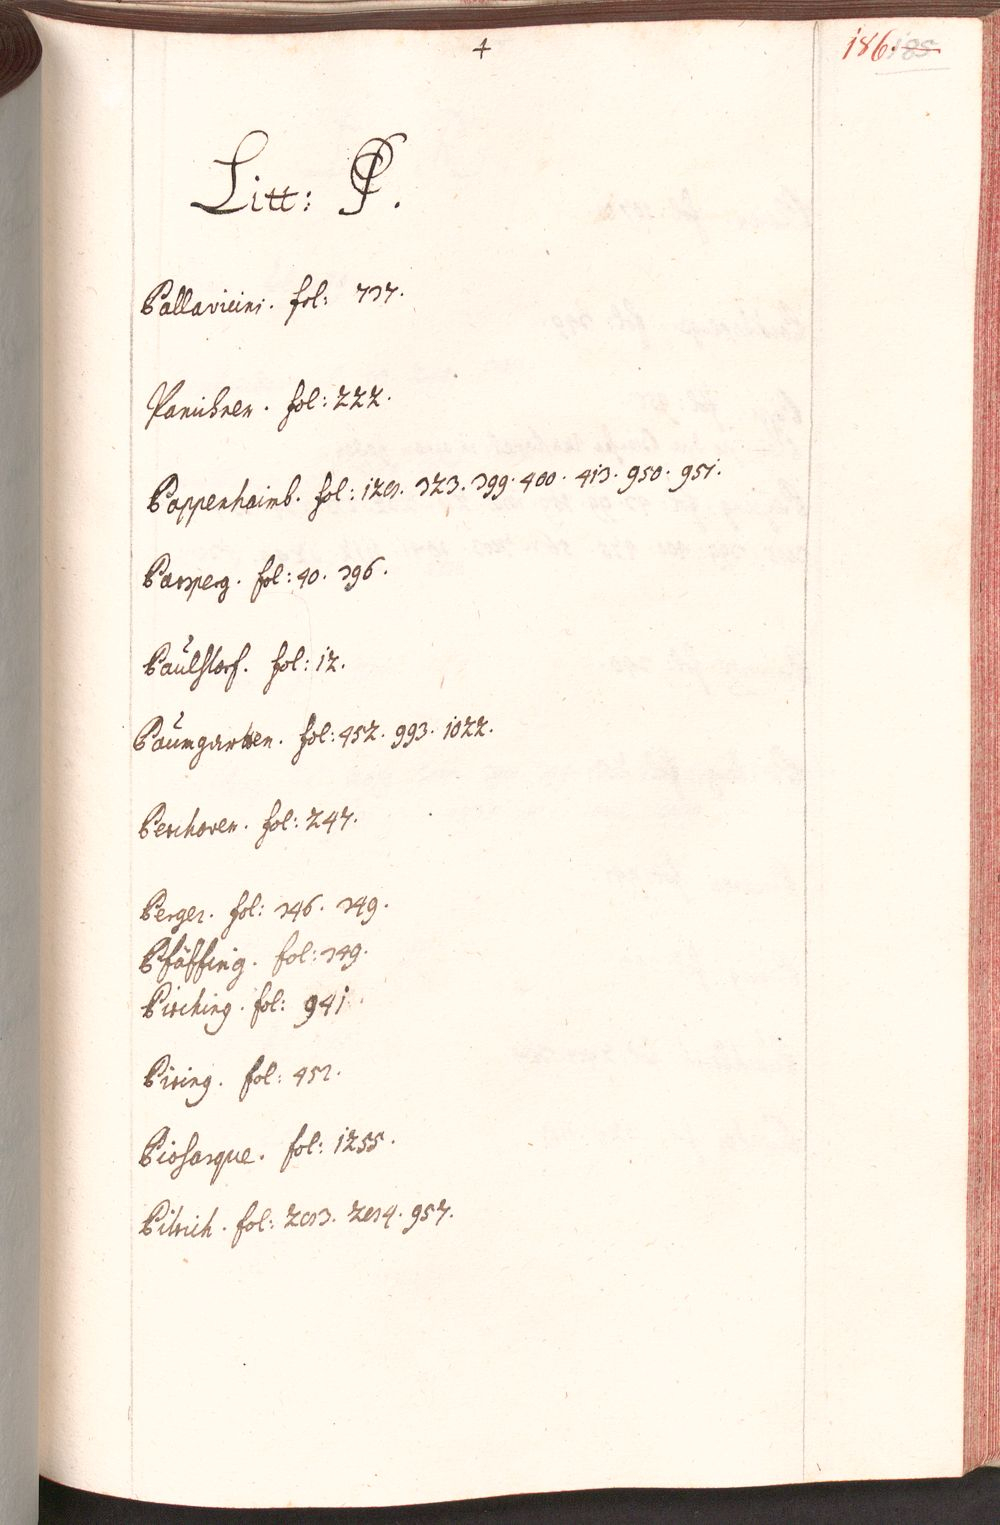 4
186. 185
Litt: P.
Pallavicini. fol: 737.
Panichner. fol: 222.
Pappenhaimb. fol: 120. 323. 399. 400. 413. 950. 951.
Parsperg. fol: 40. 396.
Paulstorf. fol: 12.
Paumgartten. fol: 452. 993. 1022.
Perchover. fol: 247.
Perger. fol: 346. 349.
Pfäffing. fol: 349.
Pirching. fol: 941.
Piring. fol: 452.
Piosasque. fol: 1255.
Pitrich. fol: 957.